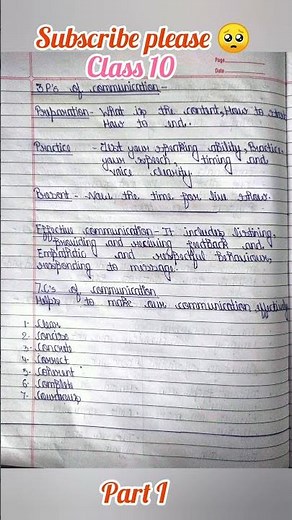 Subscribe please 🥺
Class 10
Page
Date
3 P's of communication -
Preparation - What is the content, How to start
How to end.
Practice - Test your speaking ability, Practice
your speech, timing and
voice clarity.
Present - Now the time for live show.
Effective communication - It includes listening,
providing and receiving feedback and
Empathetic and respectful behaviour,
responding to message.
7 C's of communication
Helps to make our communication effectively
1. Clear
2. Concise
3. Concrete
4. Correct
5. Coherent
6. Complete
7. Courteous
Part I